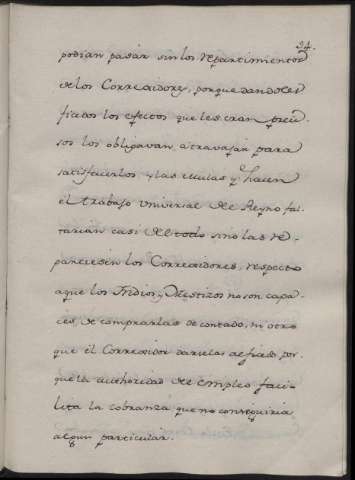 24.
podian pasár sin los repartimientos
de los Corregidores, porque dandoles
fiados los efectos que les eran preci-
sos los obligavan a travajar para
satisfacerlos y las mulas q.e hacen
el trabajo universal del Reyno fal-
tarian casi del todo sino las re-
partiesen los Corregidores, respecto
aque los Yndios y Mestizos no son capa-
ces de comprarlas de contado, ni otro
que el Corregidor darselas al fiado por-
que la authoridad del empleo faci-
lita la cobranza que no conseguiria
algun particular.